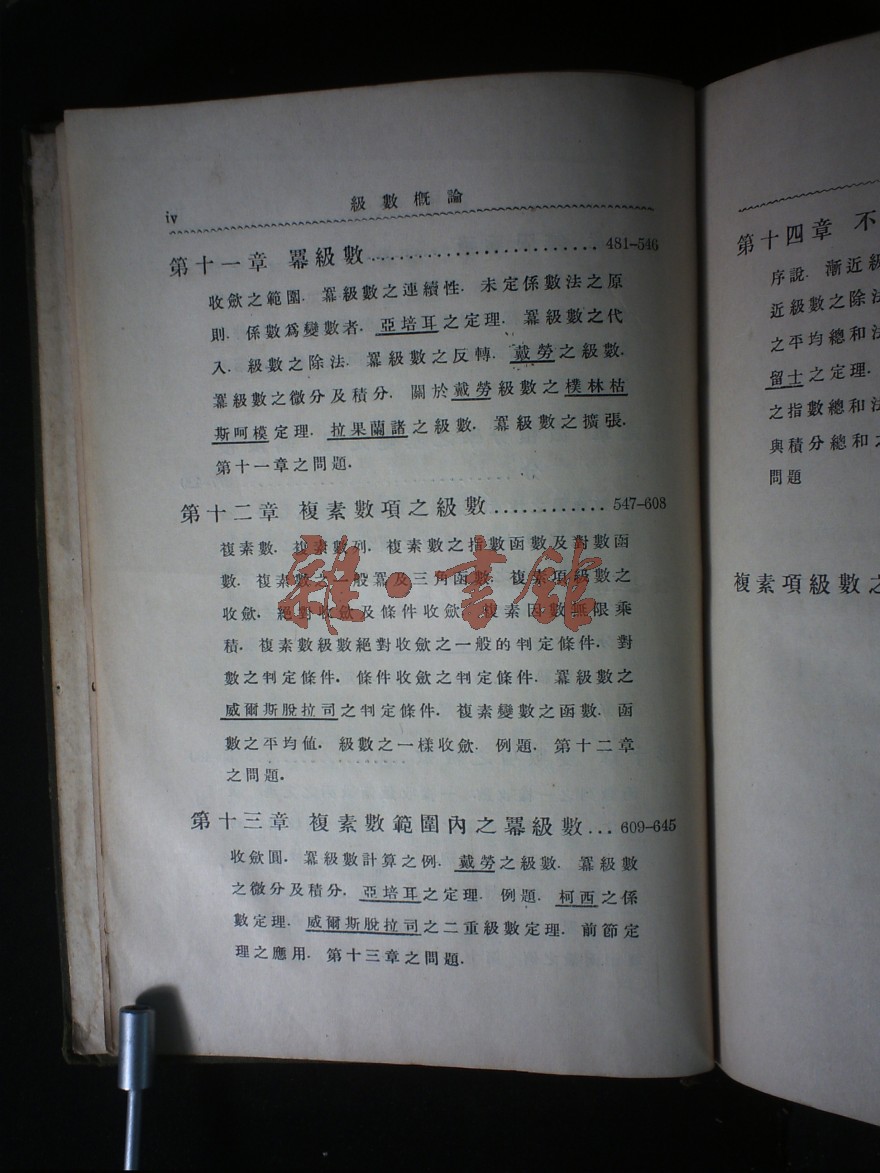 iv 級數概論
第十一章 羃級數........................481-546
收歛之範圍. 羃級數之連續性. 未定係數法之原
則. 係數爲變數者. 亞培耳之定理. 羃級數之代
入. 級數之除法. 羃級數之反轉. 戴勞之級數.
羃級數之微分及積分. 關於戴勞級數之樸林枯
斯呵模定理. 拉果蘭諸之級數. 羃級數之擴張.
第十一章之問題.
第十二章 複素數項之級數............547-608
複素數. 複素數列. 複素數之指數函數及對數函
數. 複素數之一般羃及三角函數. 複素項級數之
收歛. 絕對收歛及條件收歛. 複素因數無限乘
積. 複素數級數絕對收歛之一般的判定條件. 對
數之判定條件. 條件收歛之判定條件. 羃級數之
威爾斯脫拉司之判定條件. 複素變數之函數. 函
數之平均值. 級數之一樣收歛. 例題. 第十二章
之問題.
第十三章 複素數範圍內之羃級數...609-645
收歛圓. 羃級數計算之例. 戴勞之級數. 羃級數
之微分及積分. 亞培耳之定理. 例題. 柯西之係
數定理. 威爾斯脫拉司之二重級數定理. 前節定
理之應用. 第十三章之問題.
雜·書館
第十四章 不
序說. 漸近級
近級數之除法
之平均總和法
留士之定理.
之指數總和法
與積分總和之
問題
複素項級數之